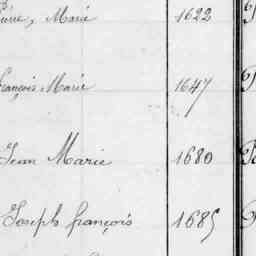 Marie 1622
françois Marie 1647
Jean Marie 1680
Joseph françois 1685